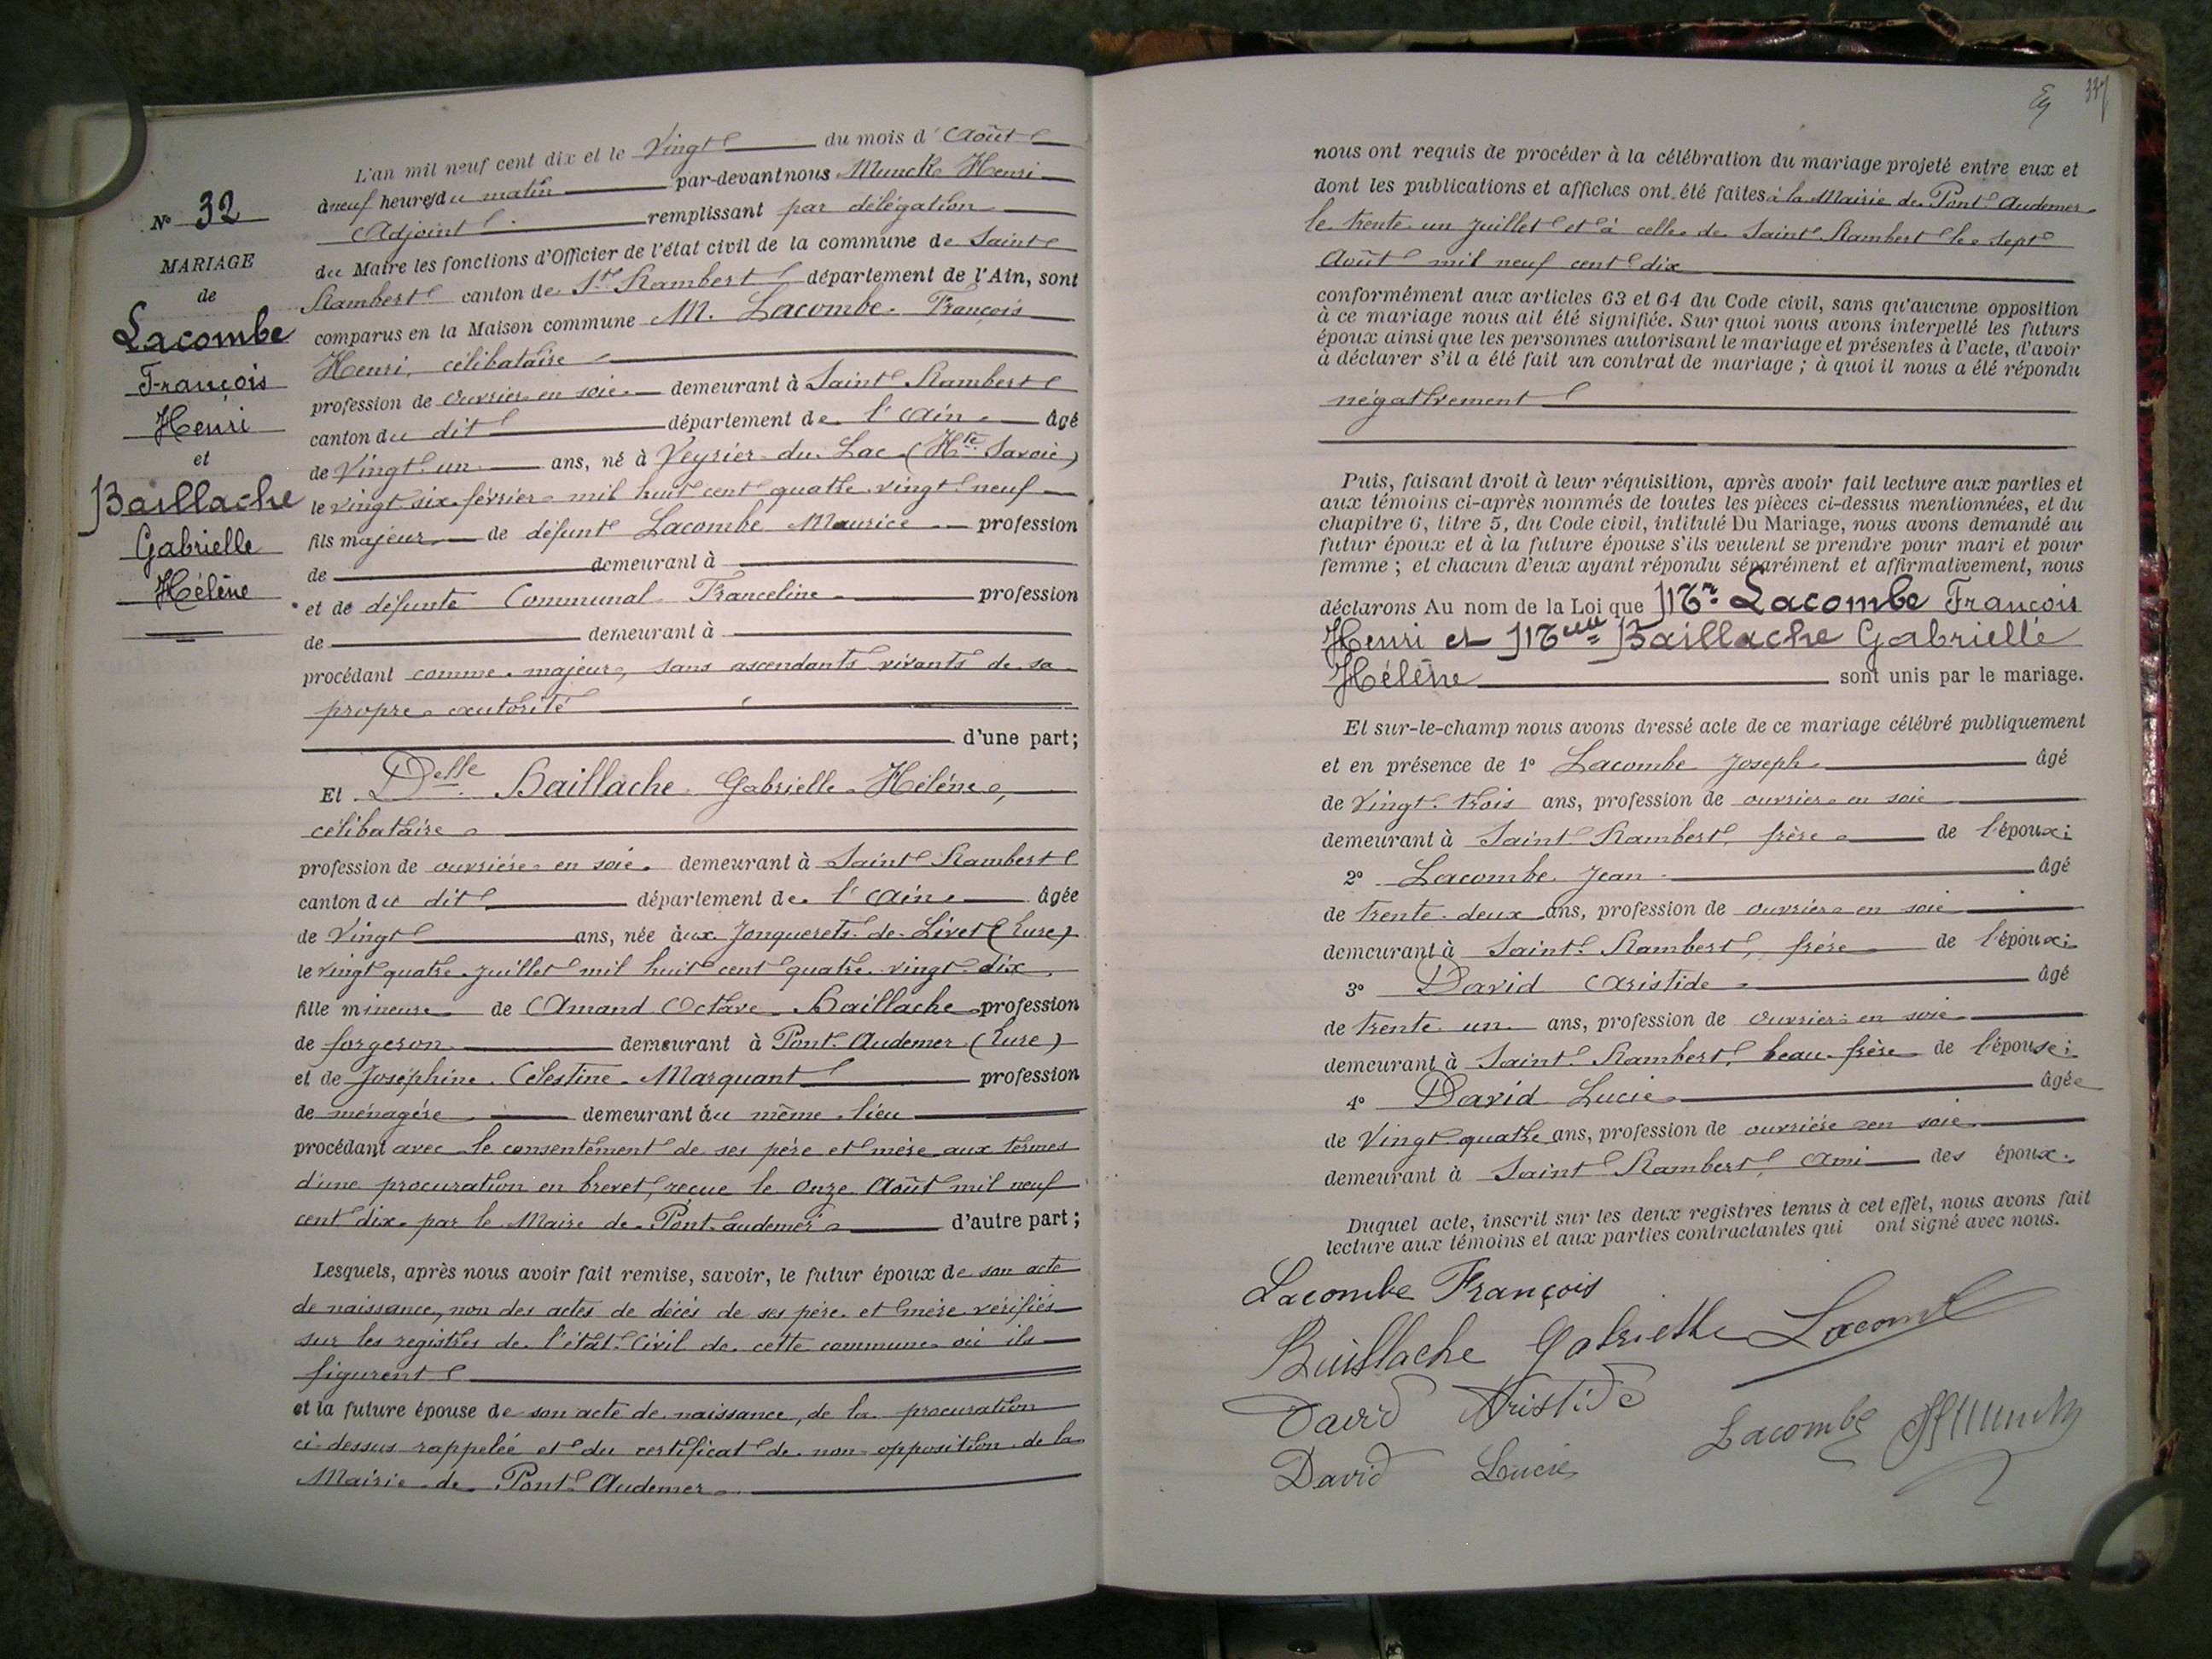 N° 32
MARIAGE
de
Lacombe
François
Henri
et
Baillache
Gabrielle
Hélène
L'an mil neuf cent dix et le Vingt du mois d'Août
à neuf heures du matin par-devant nous Munck Henri
Adjoint remplissant par délégation
du Maire les fonctions d'Officier de l'état civil de la commune de Saint
Rambert canton de St Rambert département de l'Ain, sont
comparus en la Maison commune M. Lacombe François
Henri, célibataire
profession de ouvrier en soie demeurant à Saint Rambert
canton du dit département de l'Ain âgé
de Vingt un ans, né à Veyrier du Lac (Hte Savoie)
le vingt six février mil huit cent quatre vingt neuf
fils majeur de défunt Lacombe Maurice profession
de demeurant à
et de défunte Communal Franceline profession
de demeurant à
procédant comme majeur, sans ascendants vivants de sa
propre autorité
d'une part;
Et Delle Baillache Gabrielle Hélène,
célibataire
profession de ouvrière en soie demeurant à Saint Rambert
canton du dit département de l'Ain âgée
de Vingt ans, née aux Jonquerets de Livet (Eure)
le vingt quatre juillet mil huit cent quatre vingt dix
fille mineure de Amand Octave Baillache profession
de forgeron demeurant à Pont Audemer (Eure)
et de Joséphine Célestine Marquant profession
de ménagère demeurant au même lieu
procédant avec le consentement de ses père et mère aux termes
d'une procuration en brevet, reçue le onze Août mil neuf
cent dix par le Maire de Pont audemer d'autre part;
Lesquels, après nous avoir fait remise, savoir, le futur époux de son acte
de naissance, non des actes de décès de ses père et mère vérifiés
sur les registres de l'état Civil de cette commune où ils
figurent
et la future épouse de son acte de naissance, de la procuration
ci-dessus rappelée et du certificat de non-opposition de la
Mairie de Pont Audemer
337
nous ont requis de procéder à la célébration du mariage projeté entre eux et
dont les publications et affiches ont été faites à la Mairie de Pont Audemer
le trente un juillet et à celle de Saint Rambert le sept
Août mil neuf cent dix
conformément aux articles 63 et 64 du Code civil, sans qu'aucune opposition
à ce mariage nous ait été signifiée. Sur quoi nous avons interpellé les futurs
époux ainsi que les personnes autorisant le mariage et présentes à l'acte, d'avoir
à déclarer s'il a été fait un contrat de mariage; à quoi il nous a été répondu
négativement
Puis, faisant droit à leur réquisition, après avoir fait lecture aux parties et
aux témoins ci-après nommés de toutes les pièces ci-dessus mentionnées, et du
chapitre 6, titre 5, du Code civil, intitulé Du Mariage, nous avons demandé au
futur époux et à la future épouse s'ils veulent se prendre pour mari et pour
femme; et chacun d'eux ayant répondu séparément et affirmativement, nous
déclarons Au nom de la Loi que Mr Lacombe François
Henri et Melle Baillache Gabrielle
Hélène sont unis par le mariage.
Et sur-le-champ nous avons dressé acte de ce mariage célébré publiquement
et en présence de 1° Lacombe Joseph âgé
de Vingt trois ans, profession de ouvrier en soie
demeurant à Saint Rambert, frère de l'époux;
2° Lacombe Jean âgé
de trente deux ans, profession de ouvrier en soie
demeurant à Saint Rambert, frère de l'époux;
3° David Aristide âgé
de trente un ans, profession de ouvrier en soie
demeurant à Saint Rambert, beau-frère de l'épouse;
4° David Lucie âgée
de Vingt quatre ans, profession de ouvrière en soie
demeurant à Saint Rambert, Ami des époux.
Duquel acte, inscrit sur les deux registres tenus à cet effet, nous avons fait
lecture aux témoins et aux parties contractantes qui ont signé avec nous.
Lacombe François
Baillache Gabrielle Lacombe
David Aristide
Lacombe HMunck
David Lucie